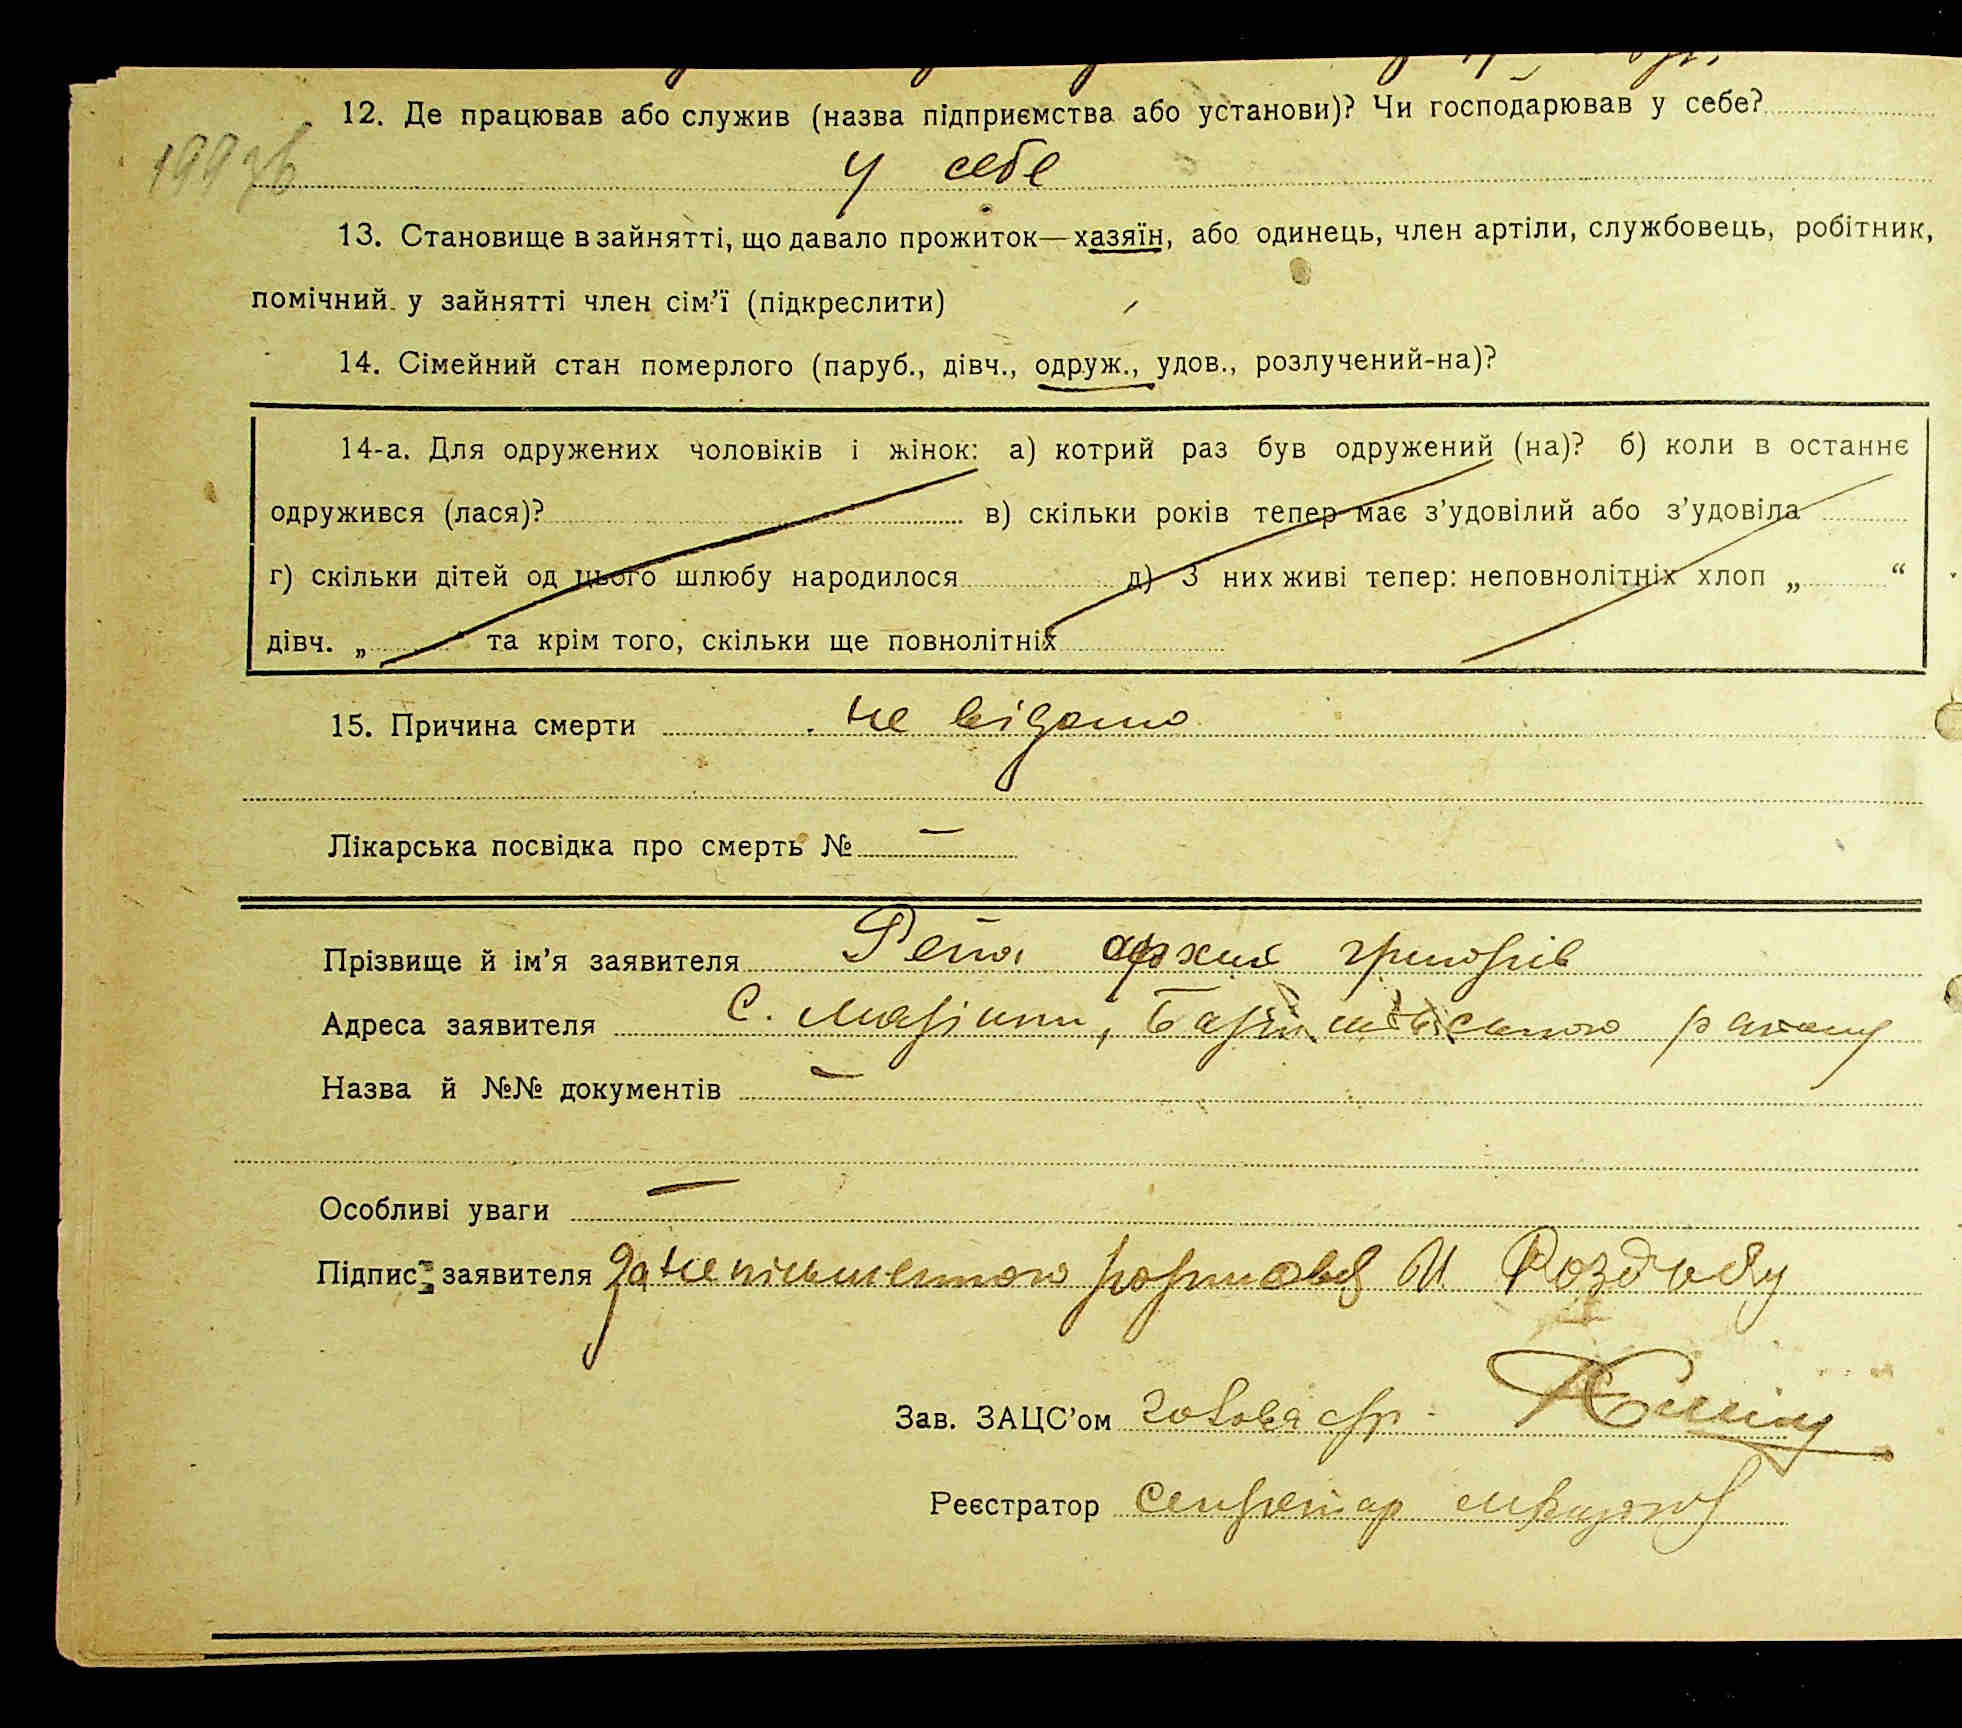 12. Де працював або служив (назва підприємства або установи)? Чи господарював у себе?
199 зв
у себе
13. Становище в зайнятті, що давало прожиток—хазяїн, або одинець, член артіли, службовець, робітник,
помічний у зайнятті член сім'ї (підкреслити)
14. Сімейний стан померлого (паруб., дівч., одруж., удов., розлучений-на)?
14-а. Для одружених чоловіків і жінок: а) котрий раз був одружений (на)? б) коли в останнє
одружився (лася)? в) скільки років тепер має з'удовілий або з'удовіла
г) скільки дітей од цього шлюбу народилося д) З них живі тепер: неповнолітніх хлоп „ “
дівч. „ “ та крім того, скільки ще повнолітніх
15. Причина смерти не відомо
Лікарська посвідка про смерть № —
Прізвище й ім'я заявителя Репа архип григорів
Адреса заявителя с. Мар'їнки, району
Назва й №№ документів —
Особливі уваги —
Підпис заявителя За неписьменного И
Зав. ЗАЦС'ом голова с/р.
Реєстратор секретар